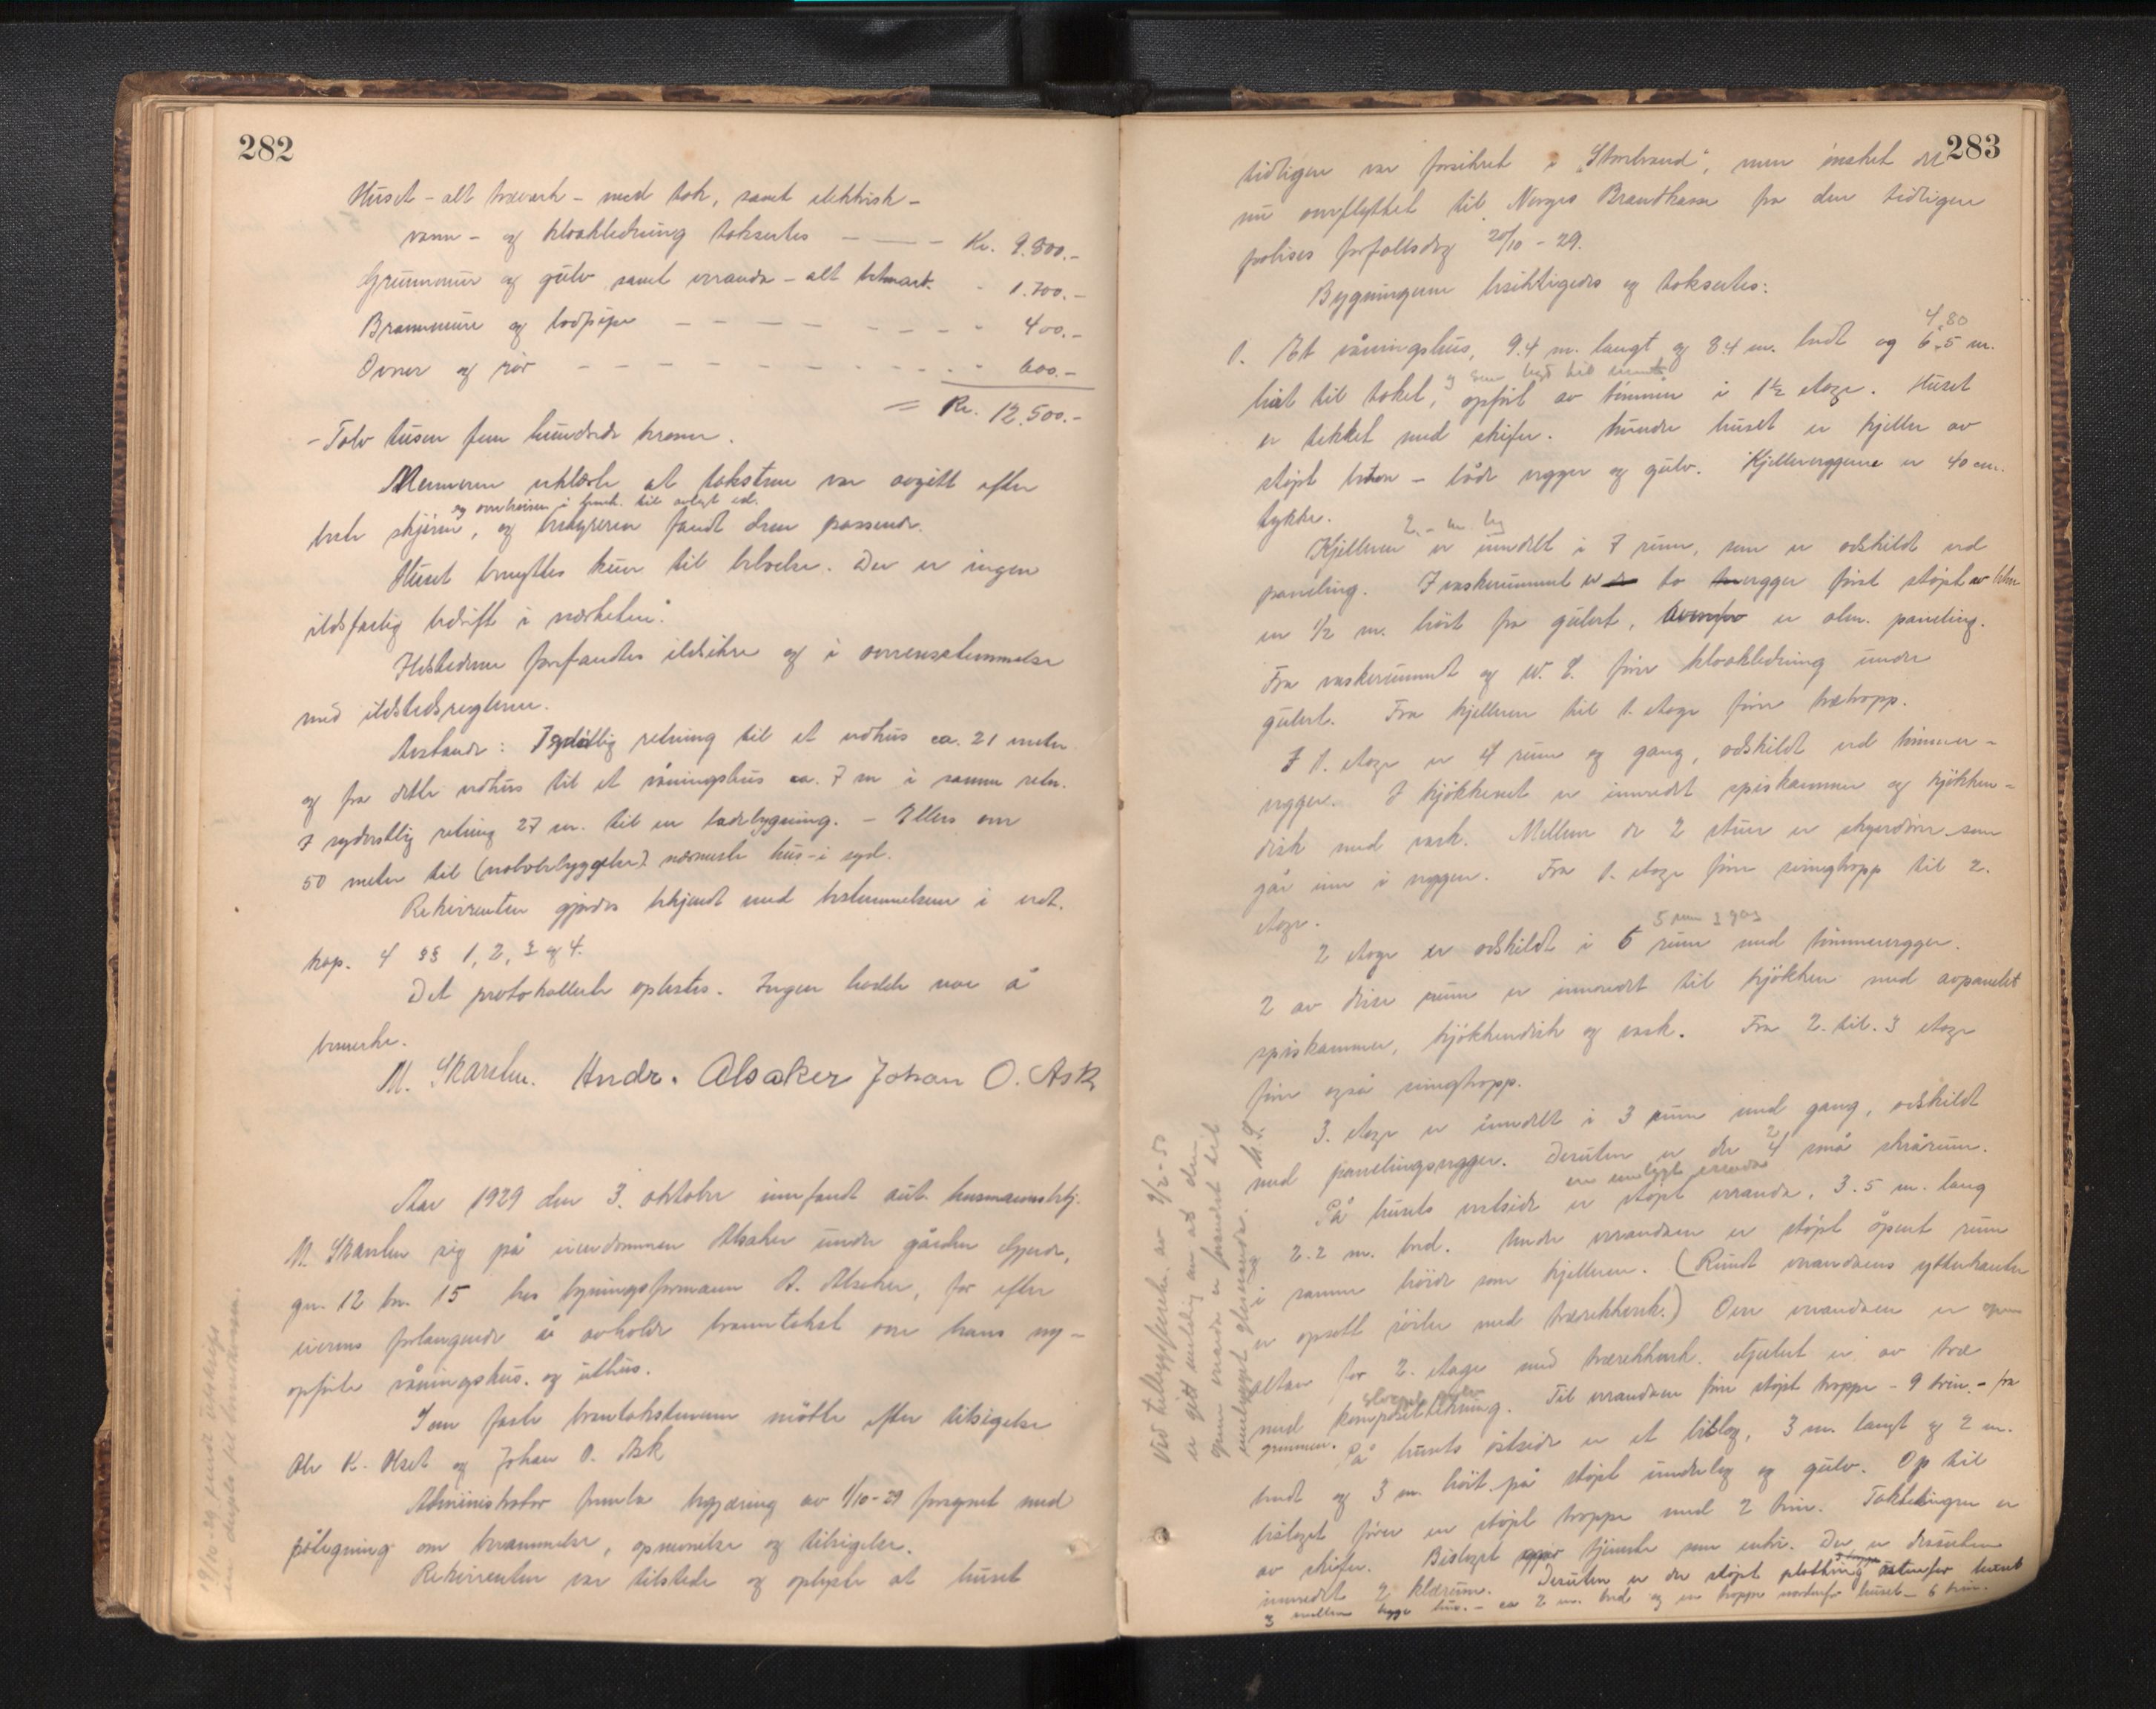 282
Huset - alt treverk - med tak, samt elektrisk -
vann - og kloakledning takseres - - - Kr. 9.800.-
Grunnmur og gulv samt veranda - alt - 1.700.-
Brannmure og lodpipe - - - - - - - - 400.-
Ovner og rör - - - - - - - - - - 600.-
= Kr. 12.500.-
- Tolv tusen fem hundrede kroner.
Mennene erklærte at taksten var avgitt efter
og overensst. i henh. til avlagt ed.
beste skjönn, og bestyreren fandt den passende.
Huset benyttes kun til beboelse. Der er ingen
ildsfarlig bedrift i nærheten.
Ildstedene forefandtes ildsikre og i overensstemmelse
med ildstedsreglene.
Avstande: I retning til et vedhus ca. 21 meter
og fra dette vedhus til et våningshus ca. 7 m i samme retn.
I sydvestlig retning 27 m. til en ladebygning. - Ellers over
50 meter til (nabobebyggelse) nærmeste hus - i syd.
Rekvirenten gjordes bekjendt med bestemmelsene i vedt.
kap. 4 §§ 1, 2, 3 og 4.
Det protokollerte oplestes. Ingen hadde noe å
bemerke.
M. Skarslin. Andr. Alsaker Johan O. Ask
Aar 1929 den 3. oktober innfandt aut.
M. Skarslin sig på eiendommen Alsaker under gården Gjerde,
gn. 12 bn. 15 hos bygningsformann A. Alsaker, for efter
eierens forlangende å avholde branntakst over hans ny-
opförte våningshus. og uthus.
Som faste branntakstmenn mötte efter tilsigelse
Ole K. Alset og Johan O. Ask
Administrator fremla begjæring av 1/10-29 forsynet med
påtegning om berammelse, opnevnelse og tilsigelse.
Rekvirenten var tilstede og oplyste at huset
19/10-29 sendt utskrift
en duplo til brandkassen.
283
tidligere var forsikret i "Storebrand", men önsket det
nu overflyttet til Norges Brandkasse fra den tidligere
polises forfallsdag 20/10 - 29.
Bygningene besiktigedes og takseres:
4.80
1. Et våningshus, 9.4 m. langt og 8.4 m. bredt og 6.5 m.
höit til taket, opfört av tömmer i 1½ etage. Huset
er tekket med skifer. Under huset er kjeller av
stöpt beton - både vegger og gulv. Kjellerveggene er 40 cm.
tykke.
Kjelleren er inndelt i 7 rum, som er adskildt ved
paneling. I vaskerummet er to vegger först stöpt av beton
en 1/2 m. höit fra gulvet, er alm. paneling.
Fra vaskerummet og W.C. förer kloakledning under
gulvet. Fra kjelleren til 1. etage förer tretrapp.
I 1. etage er 4 rum og gang, adskildt ved tömmer-
vegger. I kjökkenet er innredet spiskammer og kjökken-
disk med vask. Mellem de 2 stuer er skyvedöre som
går inn i veggen. Fra 1. etage förer svingtrapp til 2.
etage.
5 rum og gang
2 etage er adskildt i 6 rum med tömmervegger.
2 av disse rum er innredet til kjökken med avpanelet
spiskammer, kjökkendisk og vask. Fra 2. til 3 etage
förer også svingtrapp.
3. etage er inndelt i 3 rum med gang, adskildt
2
med panelingsvegger. Desuten er der 4 små skrårum.
en innbygt veranda
På husets vestside er stöpt veranda, 3.5 m. lang
i 2.2 m. bred. Under verandaen er stöpt åpent rum
i samme höide som kjelleren. (Rundt verandaens ytterkanter
er opsatt söiler med trerekkverk.) Over verandaen er åpen
altan for 2. etage med trerekkverk. Gulvet er av tre
med komposittekning. Til verandaen förer stöpt trappe - 9 trin - fra
grunnen. På husets östside er et bislag, 3 m. langt og 2 m.
bredt og 3 m. höit på stöpt underlag og gulv. Op til
bislaget förer en stöpt trappe med 2 trin. Taktekkingen er
av skifer. Bislaget tjeneste som entre. Der er dessuten
innredet 2 klærum. Desuten er der stöpt platting östenfor huset
og mellem begge hus. - ca 2 m. bred og en trappe nordenfor huset - 6 trin.
Ved tilleggsforretn. av 9/2-50
er gitt melding om at den
åpne veranda er forandret til
innebygget glassveranda. M.S.